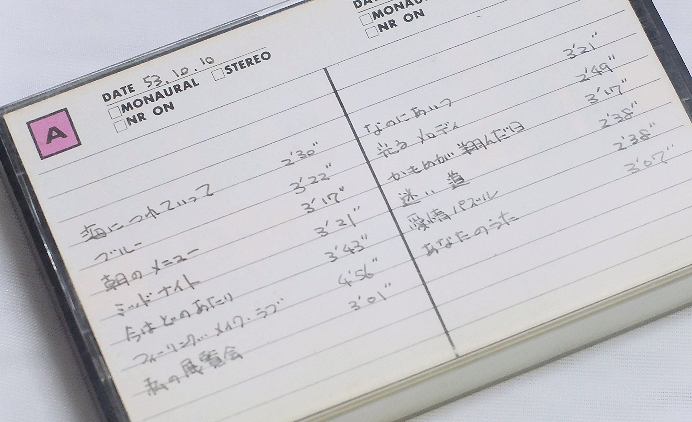 A
DATE 53.10.10
□MONAURAL □STEREO
□NR ON
海につれていって 2'30"
ブルー 3'22"
朝のメニュー 3'17"
ミッドナイト 3'21"
今はどのあたり 3'43"
フィーリング・メイク・ラブ 4'56"
私の展覧会 3'01"
DA
□MONAU
□NR ON
なのにあいつ 3'21"
光るメロディ 2'49"
かもめが翔んだ日 3'17"
迷い道 2'38"
愛情パズル 2'38"
あなたのうた 3'07"